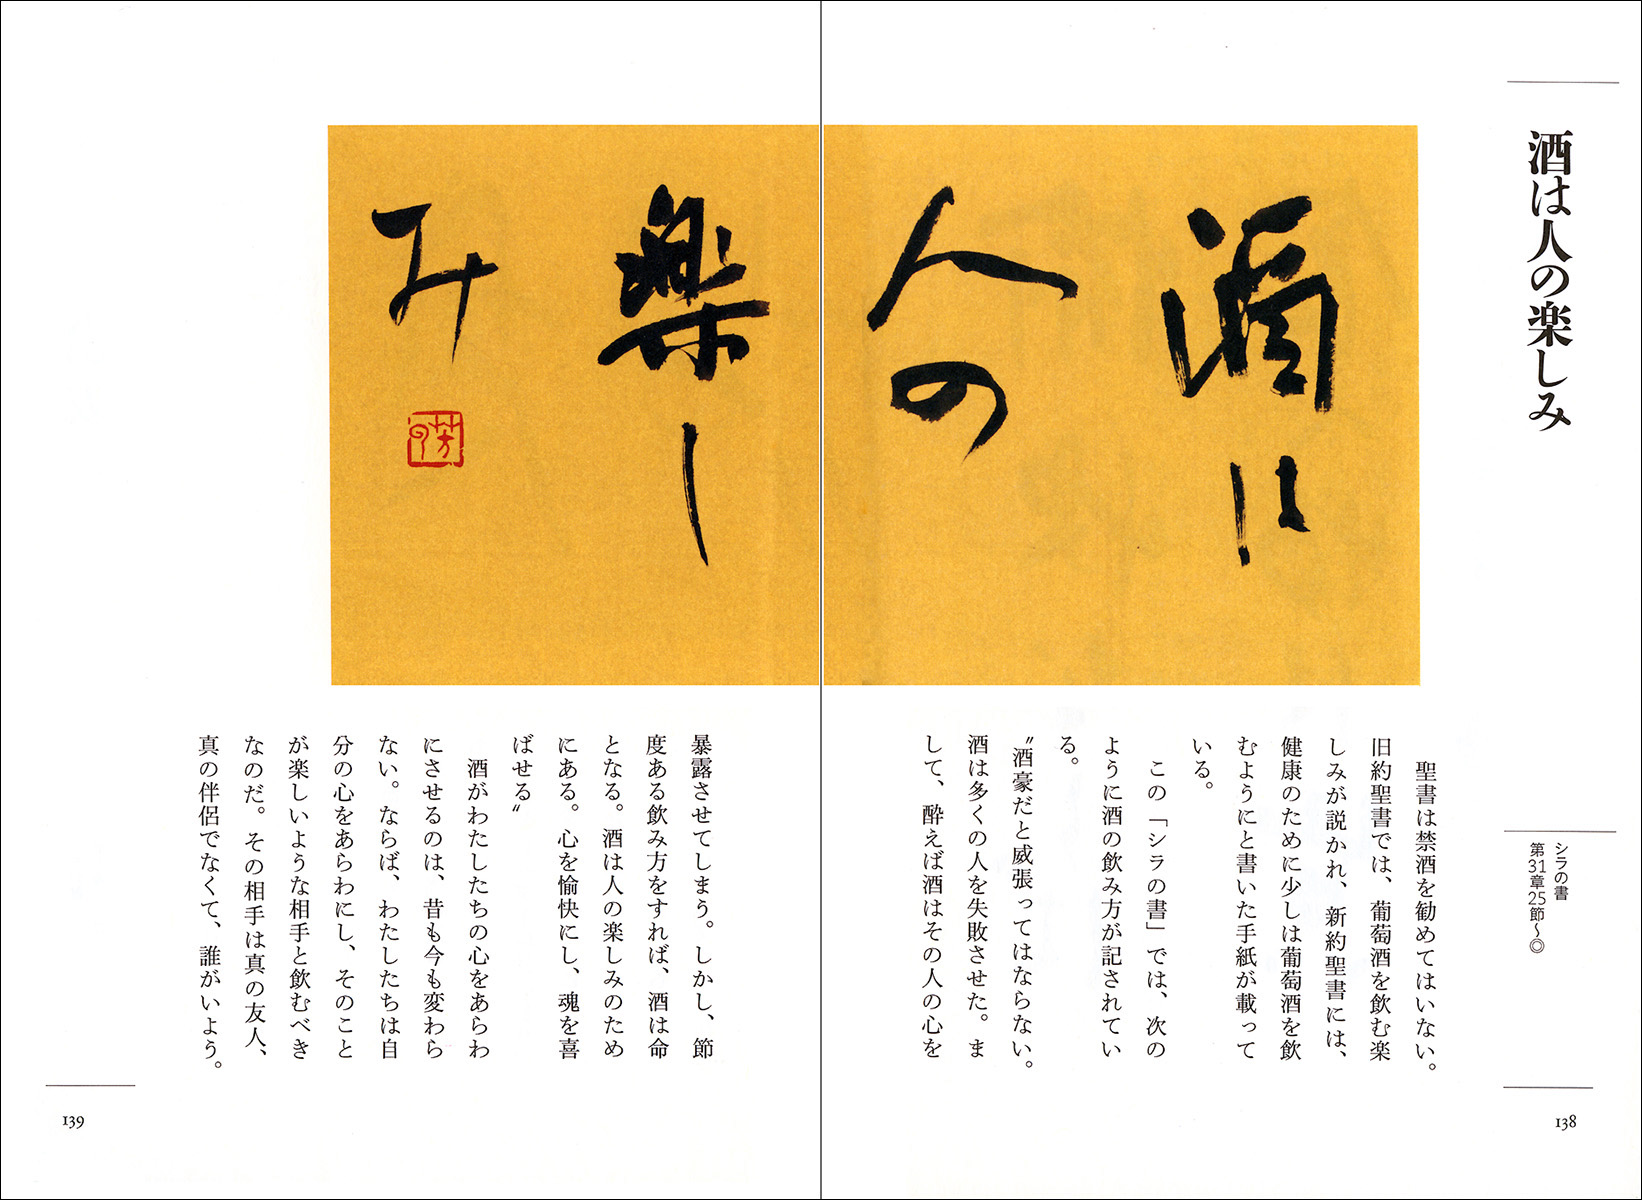 酒は人の楽しみ
シラの書
第31章25節〜◎
酒は
人の
楽し
み
聖書は禁酒を勧めてはいない。
旧約聖書では、葡萄酒を飲む楽
しみが説かれ、新約聖書には、
健康のために少しは葡萄酒を飲
むようにと書いた手紙が載って
いる。
この「シラの書」では、次の
ように酒の飲み方が記されてい
る。
〝酒豪だと威張ってはならない。
酒は多くの人を失敗させた。ま
して、酔えば酒はその人の心を
138
暴露させてしまう。しかし、節
度ある飲み方をすれば、酒は命
となる。酒は人の楽しみのため
にある。心を愉快にし、魂を喜
ばせる〟
酒がわたしたちの心をあらわ
にさせるのは、昔も今も変わら
ない。ならば、わたしたちは自
分の心をあらわにし、そのこと
が楽しいような相手と飲むべき
なのだ。その相手は真の友人、
真の伴侶でなくて、誰がいよう。
139